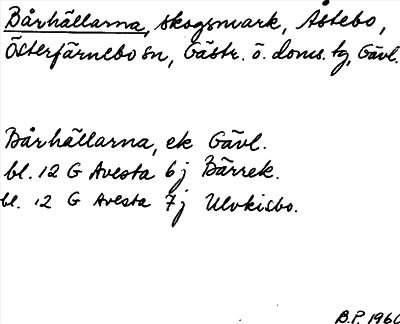 Bårhällarna, skogsmark, Åstebo,
Österfärnebo sn, Gästr. ö. doms. tg, Gävl.
Bårhällarna, ek Gävl.
bl. 12 G Avesta 6j Bärrek.
bl. 12 G Avesta 7j Ulvkisbo.
B.P. 1960